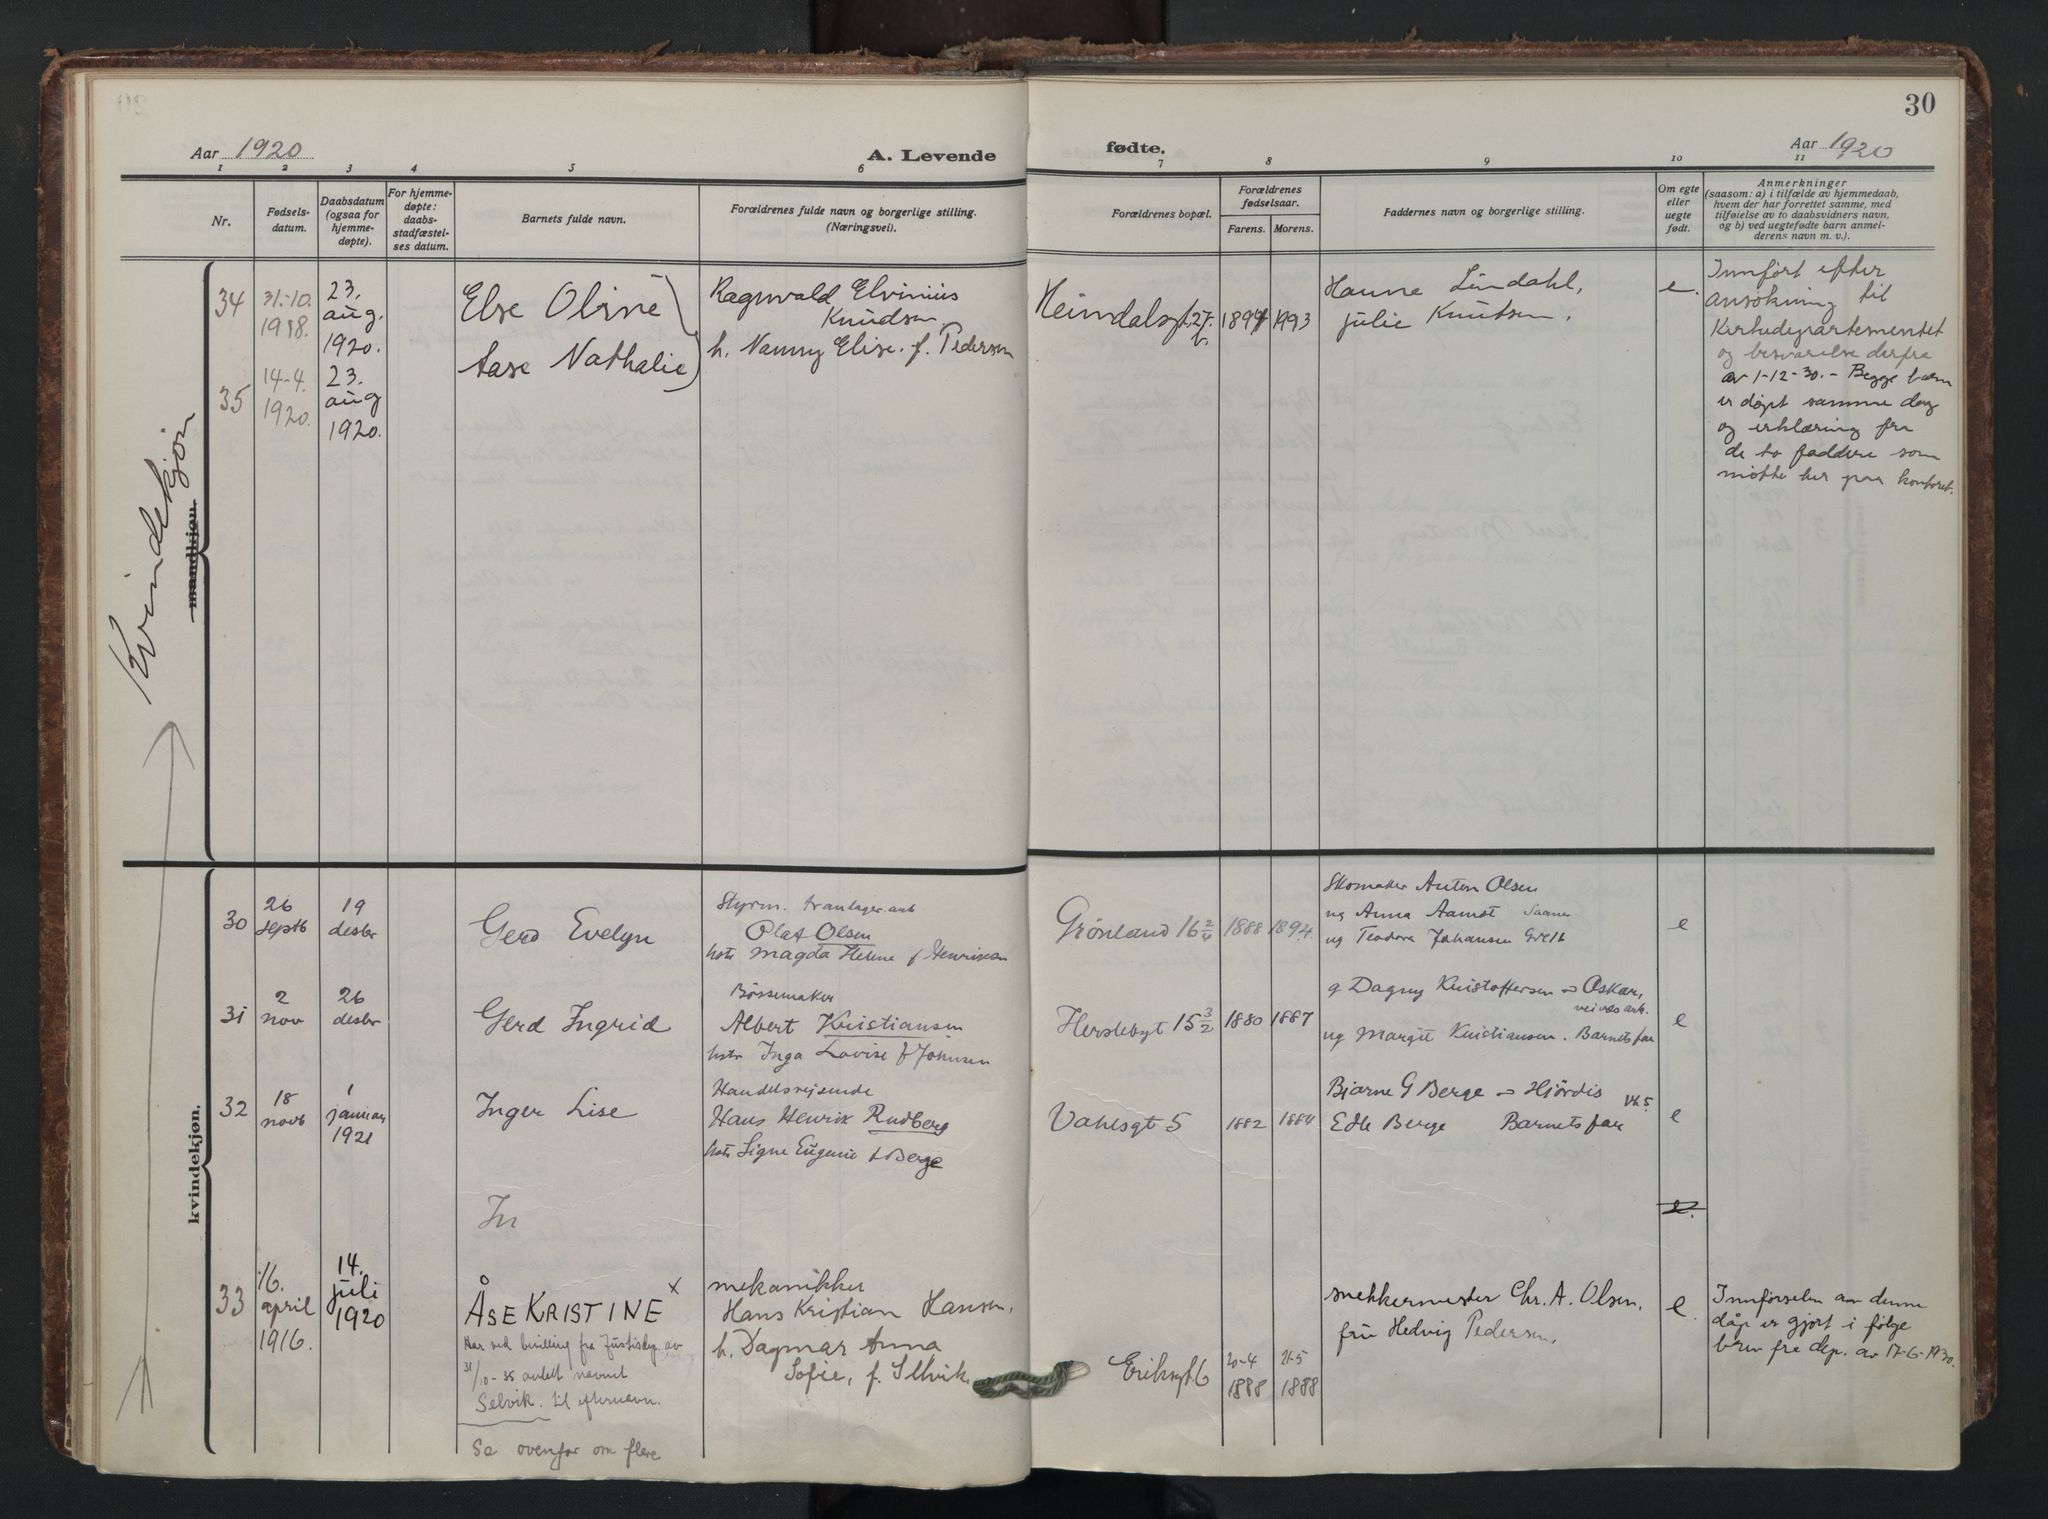 30
Aar 1920
A. Levende fødte.
Aar 1920
1 2 3 4 5 6 7 8 9 10 11
Nr.
Fødsels-
datum.
Daabsdatum
(ogsaa for
hjemme-
døpte).
For hjemme-
døpte:
daabs-
stadfæstel-
ses datum.
Barnets fulde navn.
Forældrenes fulde navn og borgerlige stilling.
(Næringsvei).
Forældrenes bopæl.
Forældrenes
fødselsaar.
Farens. Morens.
Faddernes navn og borgerlige stilling.
Om egte
eller
uegte
født.
Anmerkninger
(saasom: a) i tilfælde av hjemmedaab,
hvem der har forrettet samme, med
tilføielse av to daabsvidners navn,
og b) ved uegtefødte barn anmel-
derens navn m. v.).
Kvindekjøn
mandkjøn.
34
31.-10.
1918.
23.
aug.
1920.
Else Oline
Ragnvald Elvinius
Knudsen
h. Nanny Elise. f. Pedersen
Heimdalsgt. 27
b.
1894 1993
Hanne Lindahl,
Julie Knutsen.
e.
Innført efter
ansøkning til
Kirkedepartementet
og besvarelse derfra
av 1-12-30. - Begge barn
er døpt samme dag
og erklæring fra
de to faddere som
møtte her paa kontoret.
35
14-4.
1920.
23.
aug
1920.
Aase Nathalie
kvindekjøn.
30
26
septb
19
desbr
Gerd Evelyn
Styrm. tranlager.arb
Olaf Olsen
hstr Magda Helene f Henriksen
Grønland 16 2/4
1888 1894
Skomaker Anton Olsen
ug Anna Aamot Saane
ug Teodora Johansen
e
31
2
nov
26
desbr
Gerd Ingrid
Bøssemaker
Albert Kristiansen
hstr Inga Lovise f Johnsen
Herslebgt 15 3/2
1880 1887
g Dagny Kristoffersen - Oskar,
ug Margit Kristiansen. Barnets far
e
32
18
novb
1
januar
1921
Inger Lise
Handelsreisende
Hans Henrik Rudberg
hstr Signe Eugenie f Berge
Vahlsgt 5
1882 1884
Bjarne G Berge - Hjördis
Vk 5.
Edle Berge Barnets far
e
In
e.
33
16.
april
1916.
14.
juli
1920
ÅSE KRISTINE x
Har ved bevilling fra Justisdep. av
31/10-35 antatt navnet
Selvik. til efternavn.
Se ovenfor om flere
mekanikker
Hans Kristian Hansen,
h. Dagmar Anna
Sofie, f. Selvik.
Eriksgt 6
20-4
1888
21-5
1888
snekkermester Chr. A. Olsen,
fru Hedvig Pedersen,
e.
Innførselen av denne
dåp er gjort i følge
brev fra dep. av 17-6-1930.